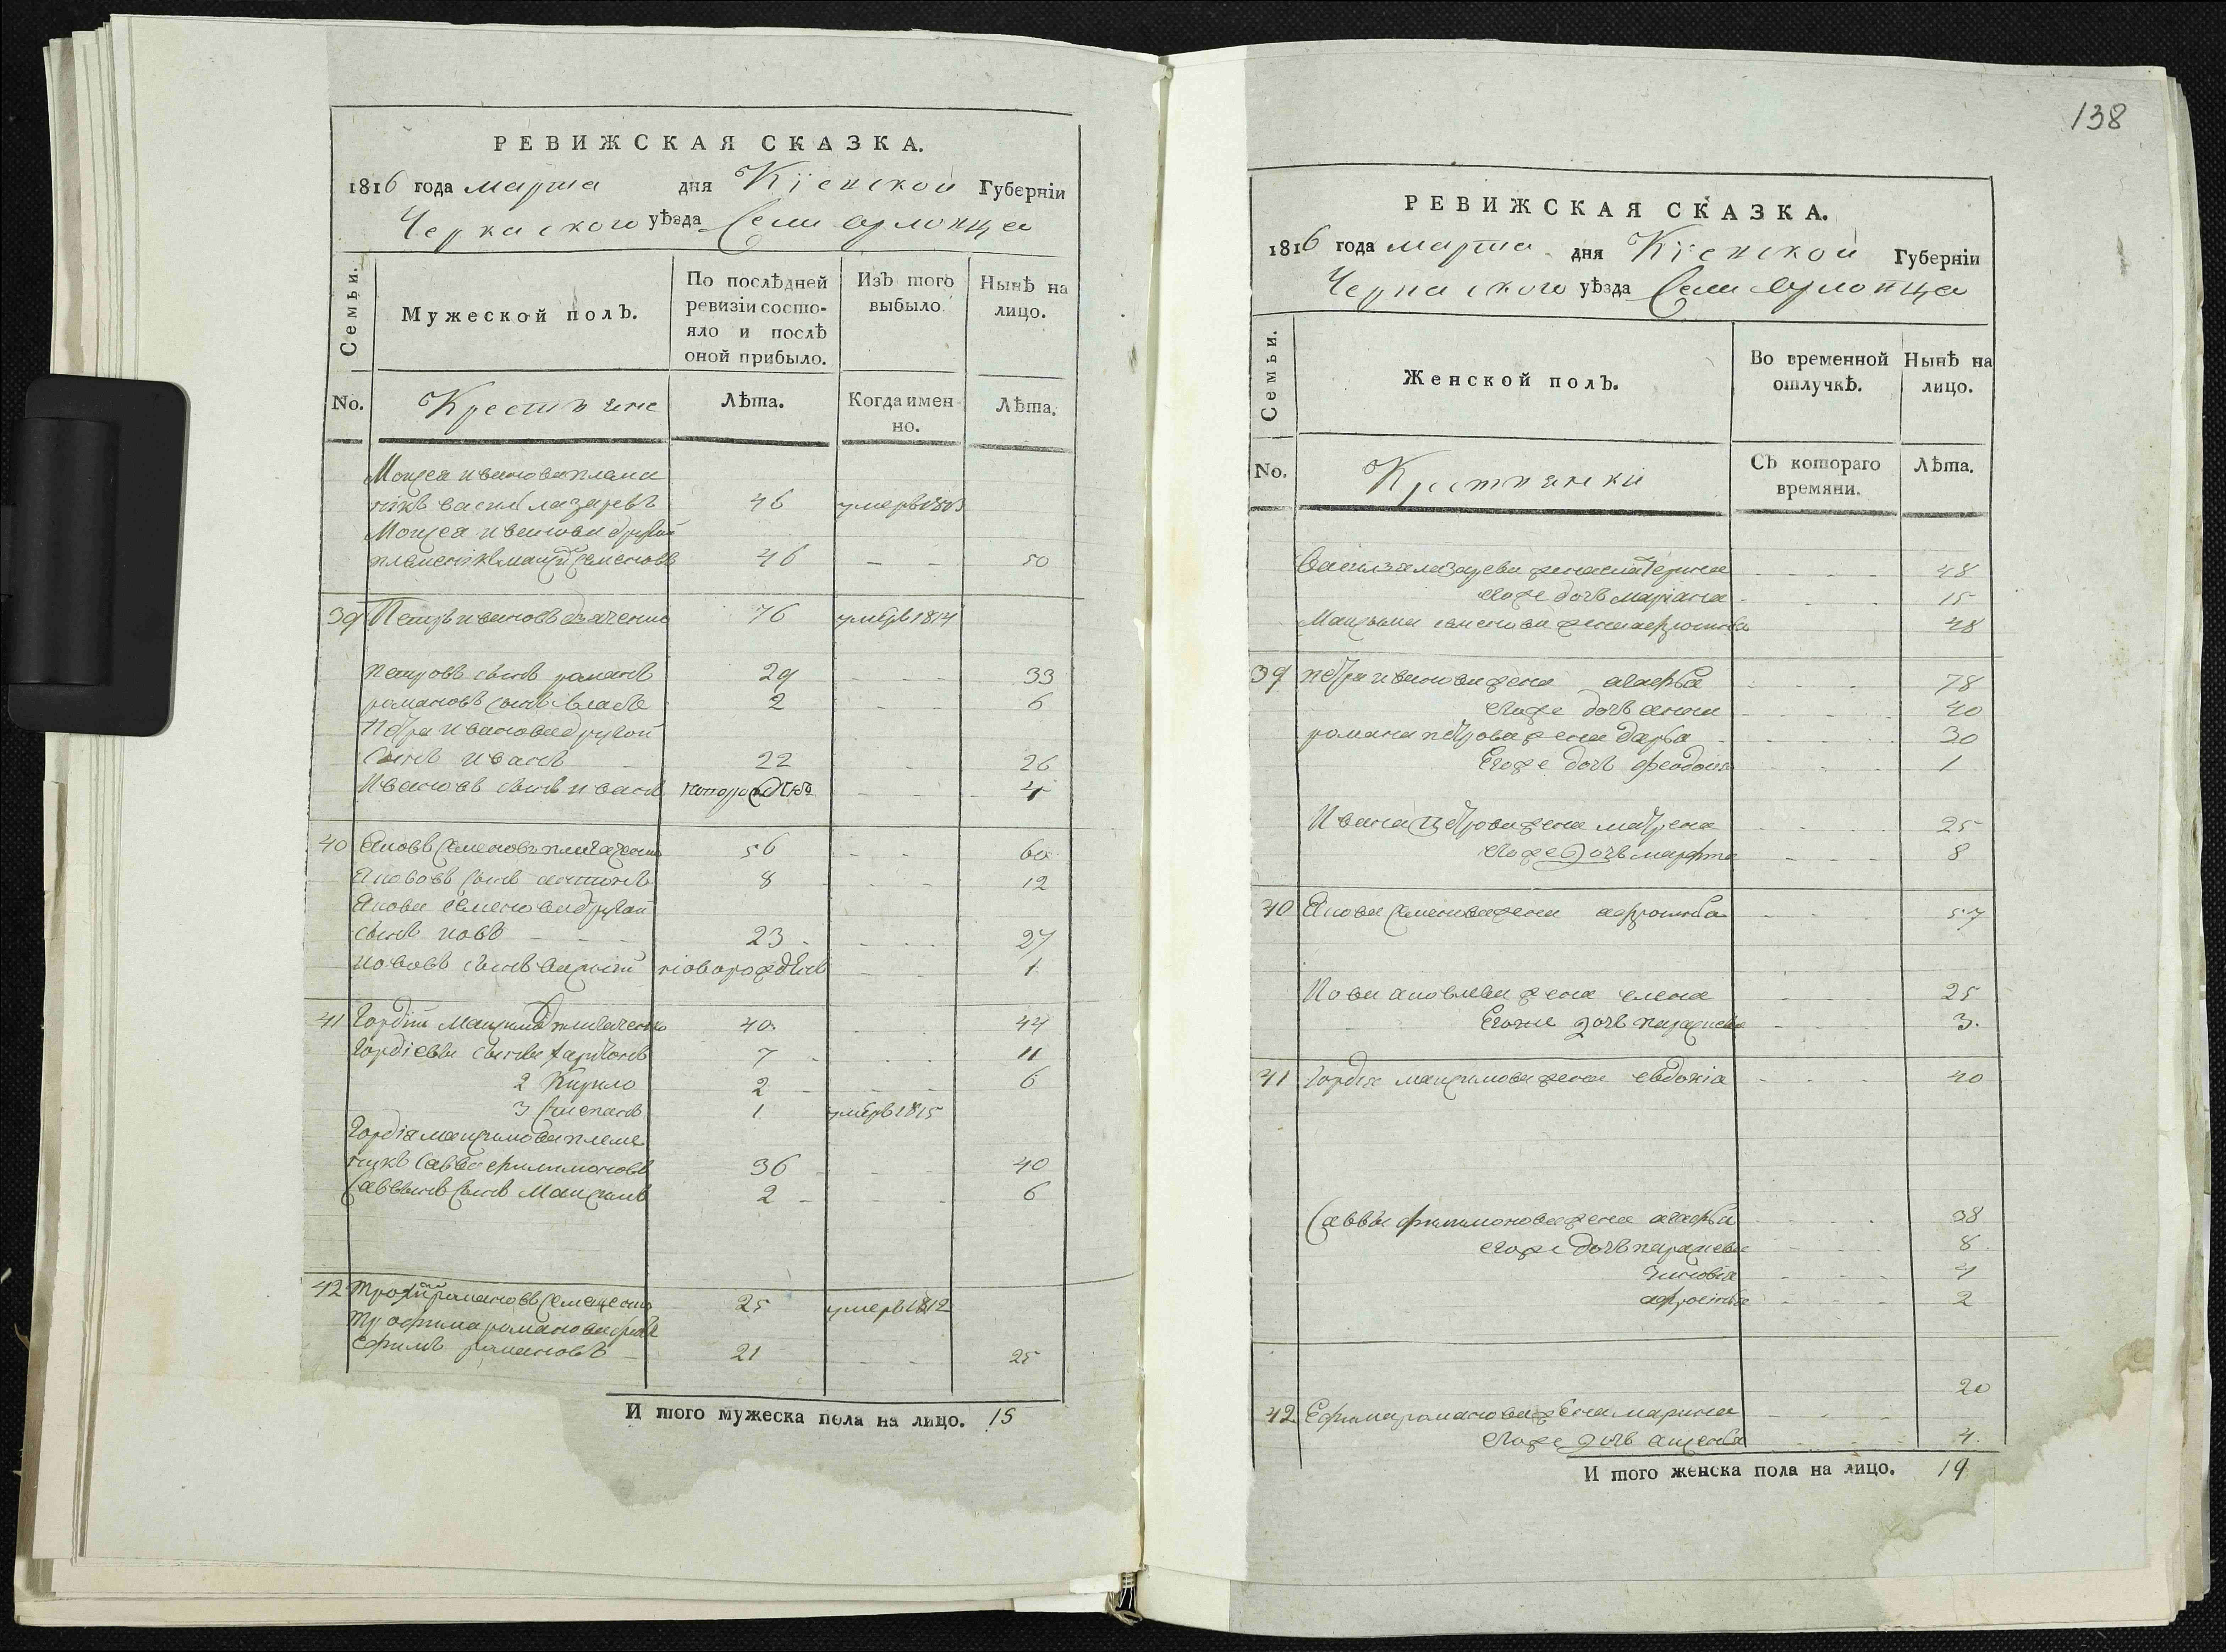 РЕВИЖСКАЯ СКАЗКА.
1816 года марта дня Кіевской Губерніи
Черкаского уѣзда Села Орловца
Семьи.
Мужеской полъ.
По послѣдней ревизіи состояло и послѣ оной прибыло.
Изъ того выбыло.
Нынѣ на лицо.
No.
Крестьяне
Лѣта.
Когда именно.
Лѣта.
Моисея иванова племе
никъ василь лазаревъ 46 умеръ 1813
Моисея иванова другой
племеникъ Семеновъ 46 - - 50
39 Петръ ивановъ 76 умеръ 1814
Петровъ сынъ романъ 29 - - 33
романовъ сынъ власъ 2 - - 6
Петра иванова другой
сынъ иванъ 22 - 26
Ивановъ сынъ иванъ - - 4
40 Яковъ Семеновъ 56 - - 60
Яововъ сынъ антонъ 8 - - 12
Якова семенова другой
сынъ иовъ - - 23 - - 27
иововъ сынъ новорожденъ - - 1
41 Гордій Максимовъ 40 - 44
Гордіевы сыновья харитонъ 7 - - 11
2 Кирило 2 - - 6
3 Степанъ 1 умеръ 1815
Гордія максимова племе
никъ Савва филимоновъ 36 - - 40
Саввинъ сынъ Максимъ 2 - - 6
42 Трофимъ романовъ 25 умеръ 1812
Трофима романова братъ
Ефимъ романовъ - 21 - - 25
И того мужеска пола на лицо. 15
138
РЕВИЖСКАЯ СКАЗКА.
1816 года марта дня Кіевской Губерніи
Черкаского уѣзда Села Орловца
Семьи.
Женской полъ.
Во временной отлучкѣ.
Нынѣ на лицо.
No.
Крестьянки
Съ котораго времяни.
Лѣта.
Василя лазарева жена катерина - - 48
егоже дочь маріана - - 15
семенова жена 48
39 петра иванова жена агафья - - 78
егоже дочь анна - - 40
романа петрова жена дарья - - 30
Егоже дочь феодосия - - 1
Ивана Петрова жена матрена - - 25
егоже дочь марфа - - 8
40 Якова Семенова жена - - 57
Иова яковлева жена елена - - 25
Егоже дочь параскева - - 3.
41 Гордія максимова жена евдокіа - - 40
Саввы филимонова жена агафья - - 38
егоже дочь параскева - - 8
Зиновіа - - 4
- - 2
20
42 Ефима романова жена марина - -
егоже дочь - - 4.
И того женска пола на лицо. 19